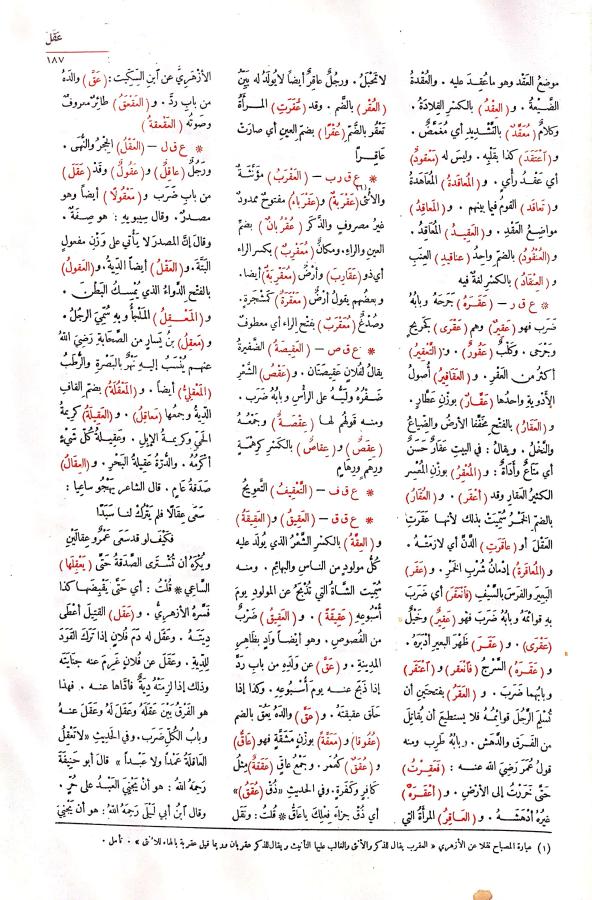 عَقَلَ
١٨٧
موضعُ العَقْد وهو ما عُقِد عليه . والعُقْدةُ
الضَّيْعةُ . و (العِقْدُ) بالكسرِ القِلادَةُ .
وكلامٌ (مُعَقَّدٌ) بالتَّشديدِ أي مُغَمَّضٌ .
و (اَعْتَقَدَ) كذا بقَلْبِه . وليسَ له (مَعْقودٌ)
أي عَقْدُ رأيٍ . و (المُعاقدةُ) المُعاهَدةُ
و (تَعاقَدَ) القومُ فيما بينهم . و (المَعاقِدُ)
مواضعُ العَقْدِ . و (العَقِيدُ) المُعاقِدُ .
و (العُنْقُودُ) بالضم واحدُ (عناقيدِ) العِنَبِ
و (العِنْقادُ) بالكسر لغةٌ فيه
* ع ق ر – (عَقَرَهُ) جَرَحَهُ وبابُهُ
ضَرَب فهو (عَقِيرٌ) وهم (عَقْرَى) بَكَرِيحٍ
وجَرْحَى . وكَلْبٌ (عَقُورٌ) . و (التَّعْقِيرُ)
أكثرُ من العَقْرِ . و (العَقاقِيرُ) أُصولُ
الأَدْوِيةِ واحدُها (عَقَّارٌ) بوزنِ عَطَّارٍ .
و (العَقَارُ) بالفتح مخفّفا الأرضُ والضِّياعُ
والنَّخْلُ . ويقالُ : في البيتِ عَقَارٌ حَسَنٌ
أي مَتَاعٌ وأَدَاةٌ . و (المُعْقِرُ) بوزنِ المُعْسِر
الكثيرُ العَقارِ وقد (أعْقَر) . و (العُقَارُ)
بالضم الخَمْرُ سُمِّيَتْ بذلك لأنها عَقَرَتِ
العَقْلَ أو (عاقَرَتِ) الدَّنَّ أي لازَمَتْهُ .
و (المُعاقَرَةُ) إدْمانُ شُرْبِ الخَمْرِ . و (عَقَرَ)
البعيرَ والفرسَ بالسَّيْفِ (فانْعَقَرَ) أي ضَرَبَ
به قوائمَهُ وبابُهُ ضَرَب فهو (عَقِيرٌ) وخَيْلٌ
(عَقْرَى) . و (عَقَرَ) ظَهْرَ البعيرِ أدْبَرَهُ .
و (عَقَرَهُ) السَّرْجُ (فانْعَقَر) و (اَعْتَقَر)
وبابُهما ضَرَبَ . و (العَقَرُ) بفتحتين أن
تُسْلِمَ الرَّجُلَ قوائمُهُ فلا يستطيعَ أن يُقاتِلَ
من الفَرَقِ والدَّهَش . وبابُهُ طَرِب ومنه
قولُ عُمَرَ رَضِيَ الله عنـه : (فَعَقِرْتُ)
حَتَّى خَرَرْتُ إلى الأرضِ . و (أَعْقَرَهُ)
غيرُه أدْهَشَهُ . و (العاقِرُ) المرأةُ التي
لا تَحْبَلُ . ورجُلٌ عاقِرٌ أيضاً لا يُولَدُ له بَيِّنُ
(العُقْرِ) بالضَّم . وقد (عَقُرَتِ) المـرأةُ
تَعْقُر بالضَّمِّ (عُقْرًا) بضم العينِ أي صارَتْ
عاقِراً
* ع ق ر ب – (العَقْرَبُ) مؤنَّثةٌ
والأُنثَى (عَقْرَبَةٌ) و (عَقْرَباءُ) مفتوحٌ ممدودٌ (١)
غيرُ مصروفٍ والذَّكَر (عُقْرُبانٌ) بضم
العين والراء. ومكانٌ (مُعَقْرِبٌ) بكسر الراء
أي ذو (عَقارِبَ) وأرضٌ (مُعَقْرِبَةٌ) أيضا.
وبعضُهم يقول أرضٌ (مَعْقَرَةٌ) كَشَجَرَةٍ.
وصُدْغٌ (مُعَقْرَبٌ) بفتح الراء أي معطوفٌ
* ع ق ص – (العَقِيصَةُ) الضَّفِيرةُ
يقالُ لفُلانٍ عَقِيصَتَان . و (عَقْصُ) الشَّعْرِ
ضَفْرُه ولَيُّه على الرأسِ وبابُهُ ضَرَب .
ومنه قولُهم لها (عِقْصَةٌ) وجَمْعُـهُ
(عِقَصٌ) و (عِقاصٌ) بالكَسْرِ كَرِهْمَةٍ
ورِهَمٍ ورِهامٍ
* ع ق ف – (التَّعْقِيفُ) التَّعْوِيجُ
* ع ق ق – (العَقِيقُ) و (العَقِيقَةُ)
و (العِقَّةُ) بالكسْرِ الشَّعْرُ الذي يُولَدُ عليه
كُلُّ مولودٍ من الناس والبهائم . ومنه
سُمِّيَتِ الشَّاةُ التي تُذْبَحُ عن المولودِ يومَ
أُسْبُوعِهِ (عَقِيقَةً) . و (العَقِيقُ) ضَرْبٌ
من الفُصوصِ . وهو أيضاً وادٍ بظاهِرِ
المدِينةِ . و (عَقَّ) عن وَلَدِه من باب رَدَّ
إذا ذَبَحَ عنـه يومَ أُسْبُوعِه . وكذا إذا
حَلَق عقيقتَهُ . و (عَقَّ) والدَهُ يَعُقّ بالضم
(عُقُوقا) و (مَعَقَّةً) بوزنِ مَشَقَّةٍ فهو (عاقٌّ)
و (عُقَقٌ) كعُمَر . وجَمْعُ عاقٍّ (عَقَقَةٌ) مِثْلُ
كافِرٍ وكَفَرَةٍ. وفي الحديثِ «ذُقْ (عُقَقُ)»
أي ذُقْ جزاءَ فِعْلِك يا عاقُّ * قُلْتُ : ونَقَل
الأزْهَرِيُّ عن ابن السِّكِّيت: (عَقَّ) والدَهُ
من باب رَدَّ . و (العَقْعَقُ) طائرٌ معروفٌ
وصَوتُه (العَقْعَقَةُ)
* ع ق ل – (العَقْلُ) الحِجْرُ والنُّهَى .
ورَجُلٌ (عاقِلٌ) و (عَقُولٌ) وقَدْ (عَقَلَ)
من باب ضَرَب و (مَعْقُولًا) أيضاً وهو
مصـدرٌ . وقال سِيبويهِ : هو صِفَـةٌ .
وقالَ إنَّ المصدرَ لا يأتي على وَزْنِ مفعولٍ
البَتَّةَ. و (العَقْلُ) أيضاً الدِّيَةُ. و (العَقُولُ)
بالفتحِ الدَّواءُ الذي يُمْسِكُ البَطْنَ .
و (المَعْـقِلُ) المَلْجَأُ وبه سُمِّيَ الرجُلُ .
و (مَعْقِلُ) بنُ يَسارٍ من الصَّحابةِ رَضِيَ اللهُ
عنهم يُنْسَبُ إليـهِ نَهْرٌ بالبَصْرةِ والرُّطَبُ
(المَعْقِلِيُّ) أيضاً . و (المَعْقُلَةُ) بضمّ القافِ
الدِّيَةُ وجمعُها (مَعاقِلُ) . و (العَقِيلَةُ) كريمةُ
الحَيِّ وكريمـةُ الإبِلِ . وعَقِيلـةُ كُلِّ شَيْءٍ
أكْرَمُهُ . والدُّرَّةُ عَقِيلةُ البَحْرِ . و (العِقالُ)
صَدَقةُ عامٍ . قال الشاعر يَهْجُو ساعِيا :
سَعَى عِقَالًا فلم يَتْرُكْ لنا سَبَدًا
فكَيْفَ لو قد سَعَى عَمْرٌو عِقالَيْنِ
ويُكْرَه أن تُشْتَرَى الصَّدَقةُ حتَّى (يَعْقِلَها)
السَّاعي * قُلْتُ : أي حَتَّى يَقْبِضَها كذا
فَسَّرَهُ الأزْهَرِيُّ . و (عَقَلَ) القَتِيلَ أعْطَى
دِيَتَـهُ . وعَقَلَ له دَمَ فُلانٍ إذا تَرَكَ القَوَدَ
للدِّيَةِ . وعَقَل عن فُلانٍ غَرِمَ عنه جِنَايَتَه
وذلك إذا لزِمَتْهُ دِيَةٌ فأدّاها عنـه . فهذا
هو الفَرْقُ بَيْنَ عَقَلَهُ وعَقَلَ لهُ وعَقَلَ عنهُ
وبابُ الكُلِّ ضَرَبَ. وفي الحديثِ «لا تَعْقِلُ
العاقلةُ عَمْداً ولا عبداً» قالَ أبو حَنيفَةَ
رَحِمَهُ اللهُ : هو أنْ يَجْنِيَ العَبْدُ على حُرٍّ .
وقال ابن أبي لَيْلَى رَحِمَهُ اللهُ : هو أن يَجْنِيَ
(١) عبارة المصباح نقلا عن الأزهري «العقرب يقال للذكر والأنثى والغالب عليها التأنيث ويقال للذكر عقربان وربما قيل عقربة بالهاء للأنثى» . تأمل .